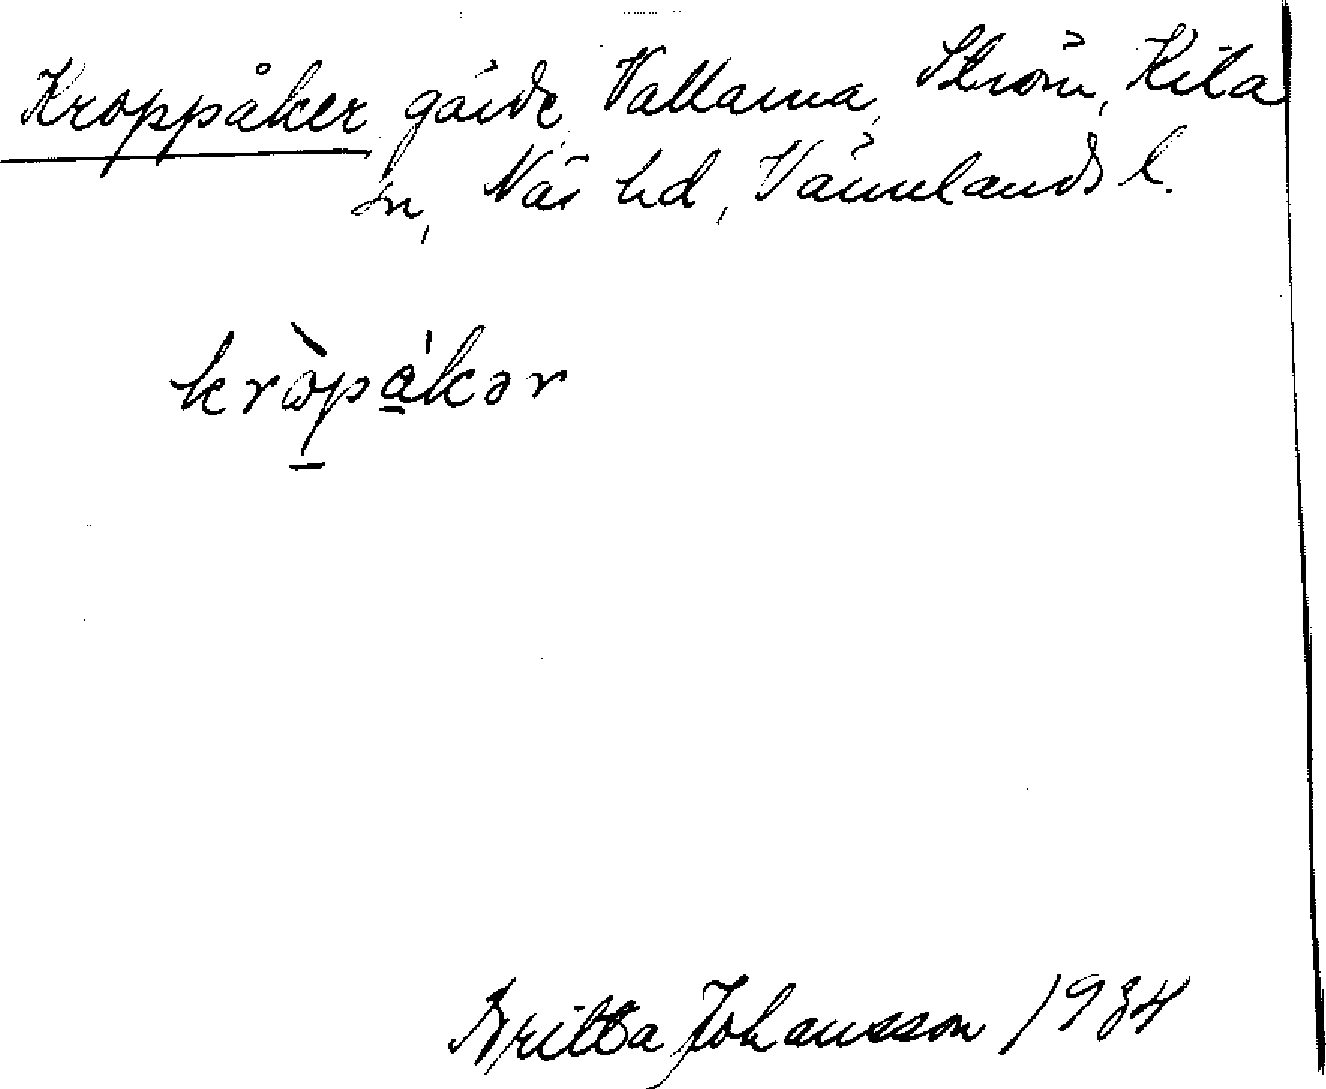 Kroppåker, gärde, Vallarna, Ström, Kila
sn, Näs hd, Värmlands l.
kròpa̱'kər
Britta Johansson 1934